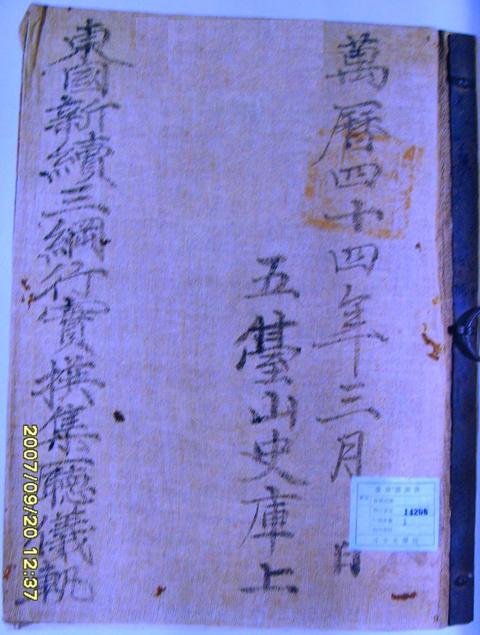 萬曆四十四年三月 日
五臺山史庫上
東國新續三綱行實撰集廳儀軌
14298
1
2007/09/20 12:37